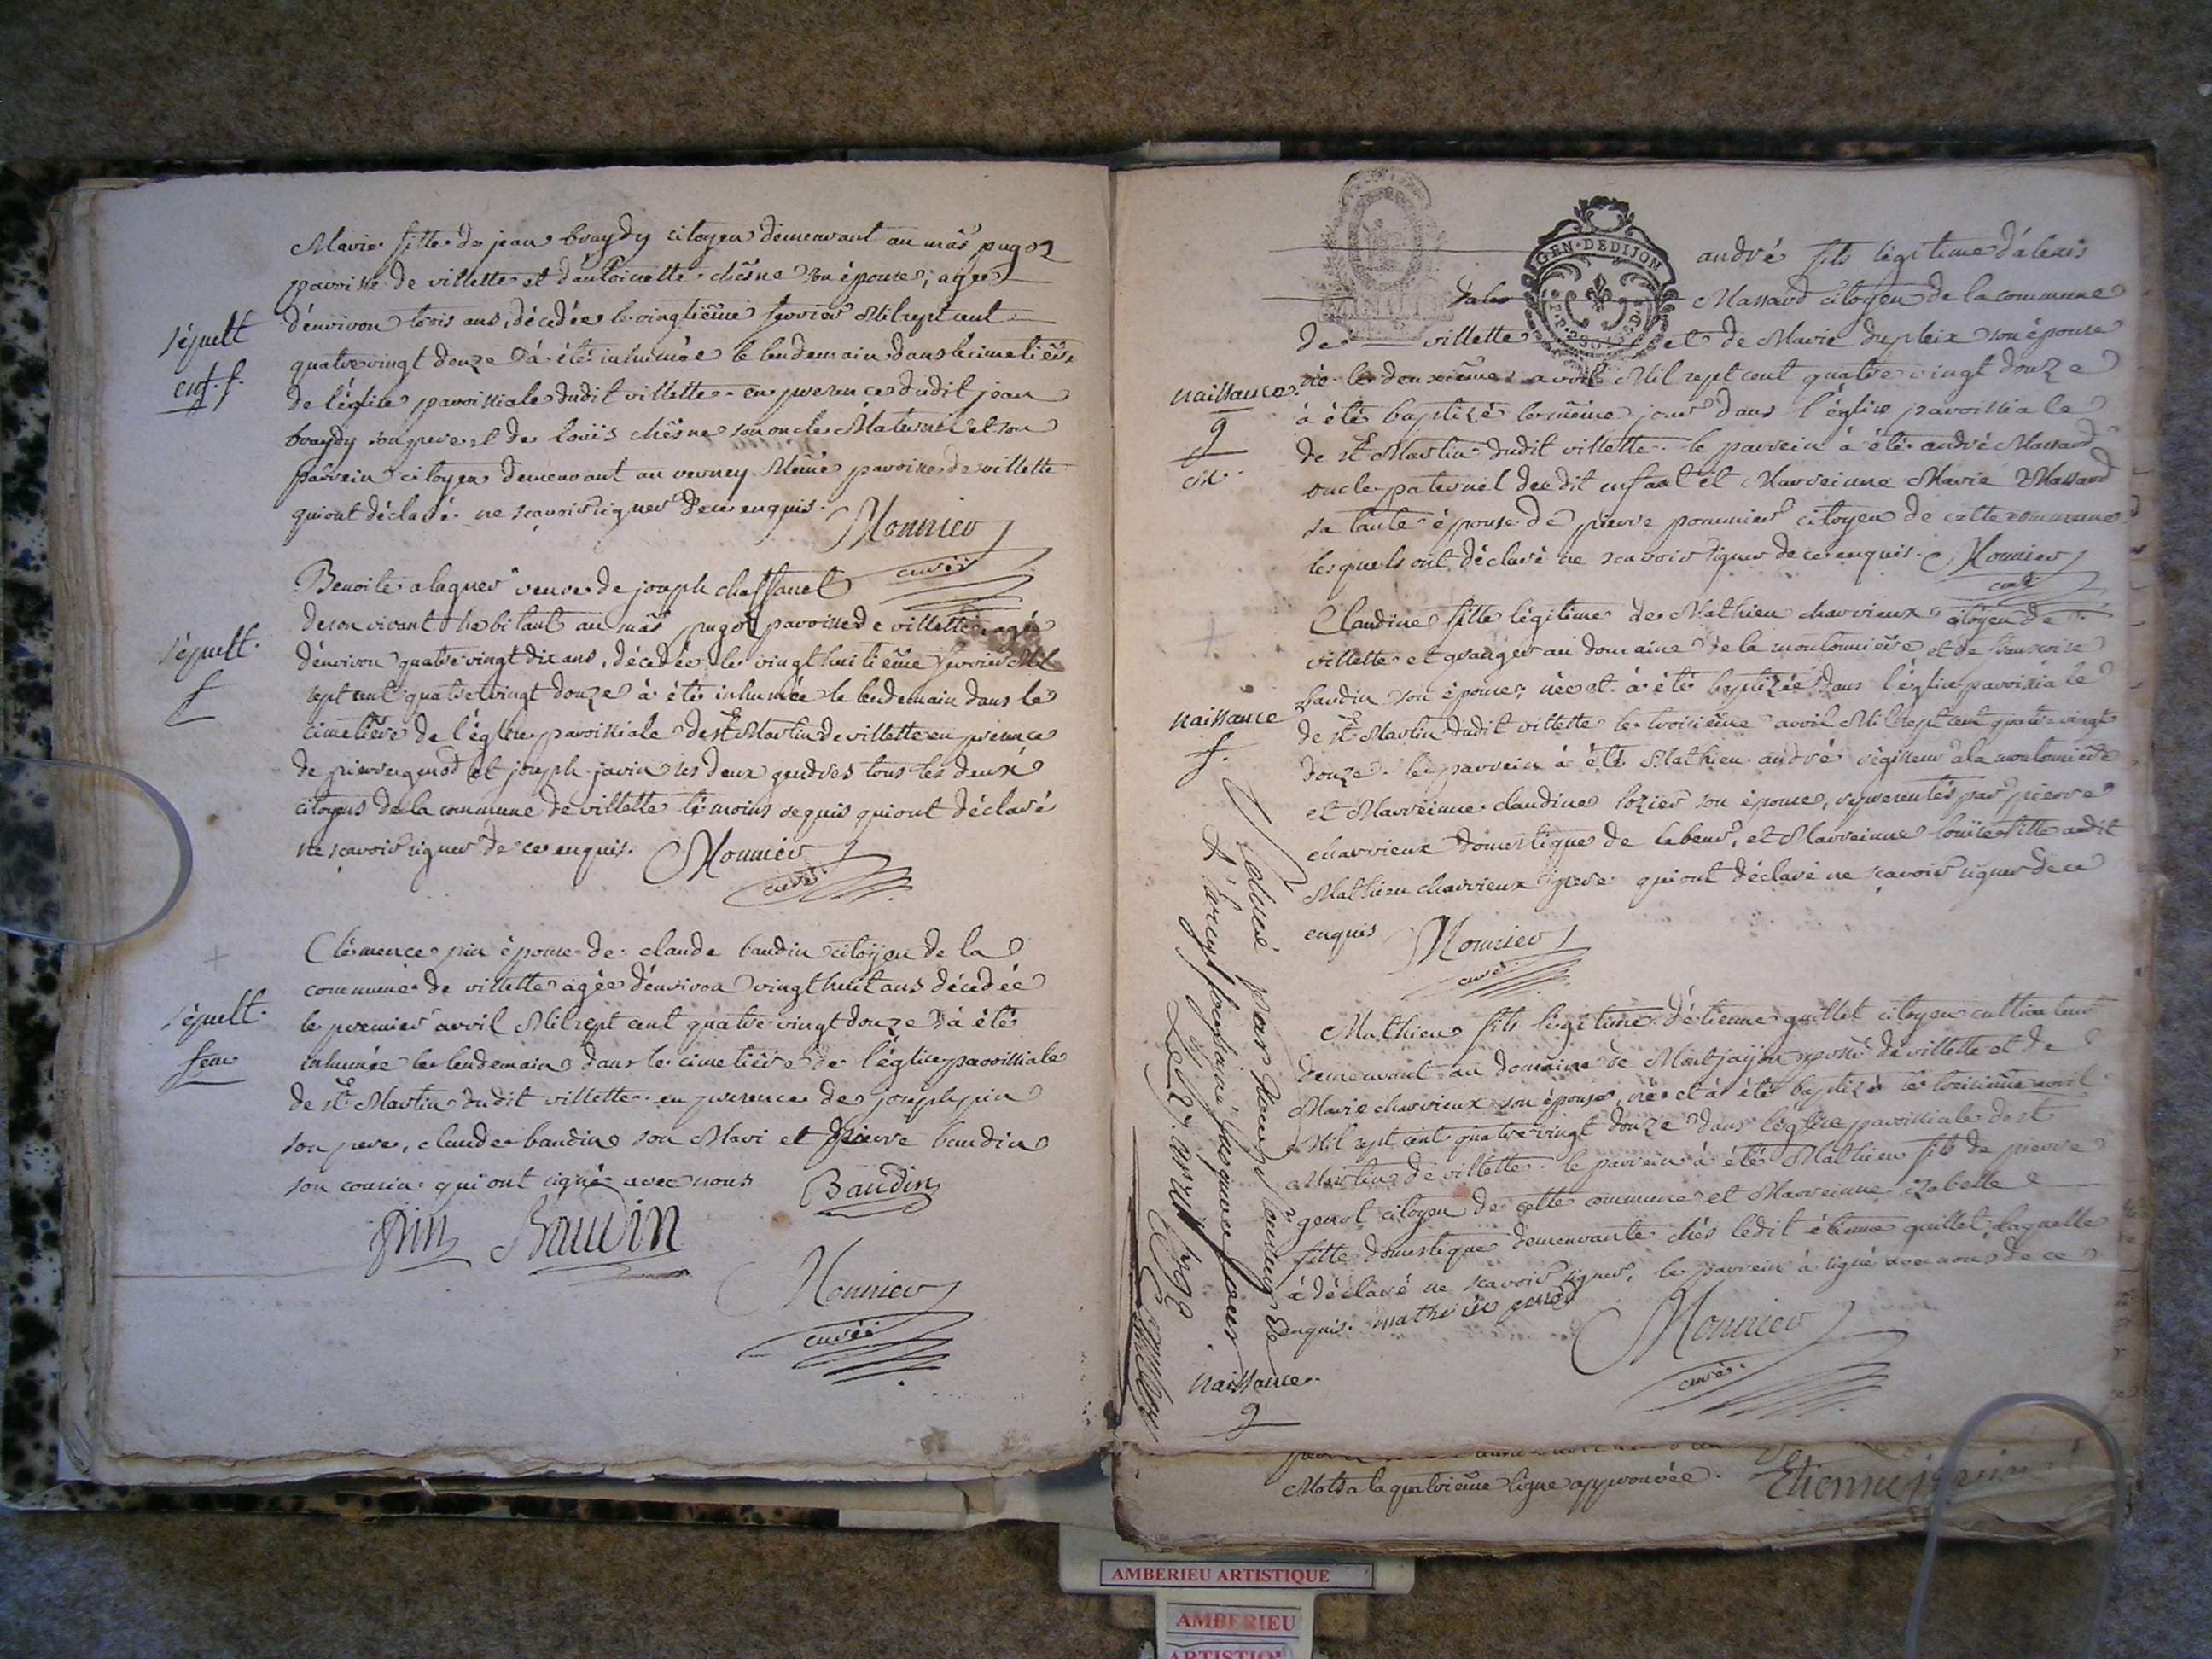 Marie fille de jean braydy citoyen demeurant au mâs pugoz
paroisse de villette et d'antoinette chêsne son épouse, agée
d'environ trois ans, décedée le vingtiême fevrier Mil sept cent
quatre vingt douze à été inhumée le lendemain dans le cimetiêre
de l'église paroissiale dudit villette en presence dudit jean
braydy son pere et de loüis chêsne son oncle Maternel et son
parrein citoyen demeurant au verney Même paroisse de villette
qui ont déclaré ne scavoir signer de ce enquis.
Monnier
curé
sépult
enf. f.
Benoite alaguer veuve de joseph chaffanel
de son vivant habitant au mâs pugoz paroisse de villette, agée
d'environ quatre vingt dix ans, décedée le vingt huitiême fevrier Mil
sept cent quatre vingt douze à été inhumée le lendemain dans le
cimetiêre de l'église paroissiale de st. Martin de villette en presence
de pierre genod et joseph javin ses deux gendres tous les deux
citoyens de la commune de villette témoins requis qui ont déclaré
ne scavoir signer de ce enquis.
Monnier
curé
sépult.
f
Clémence pin épouse de claude baudin citoÿen de la
commune de villette agée d'environ vingt huit ans décedée
le premier avril Mil sept cent quatre vingt douze à été
inhumée le lendemain dans le cimetiêre de l'église paroissiale
de st. Martin dudit villette en presence de joseph pin
son pere, claude baudin son Mari et pierre baudin
son cousin qui ont signé avec nous
Baudin
Pin Baudin
Monnier
curé
sépult.
fem
GEN. DE DIJON
andré fils légitime d'alexis
Massard citoyen de la commune
de villette et de Marie dupleix son épouse
né le deuxiême avril Mil sept cent quatre vingt douze
à été baptizé le même jour dans l'église paroissiale
de st. Martin dudit villette le parrein à été andré Massard
oncle paternel dudit enfant et Marreinne Marie Massard
sa tante épouse de pierre pommier citoyen de cette commune
lesquels ont déclaré ne scavoir signer de ce enquis.
Monnier
curé
naissance
g
Claudine fille légitime de Mathieu charvieux citoyen de
villette et granger au domaine de la moutonniêre et de françoise
baudin son épouse, née et à été baptizée dans l'église paroissiale
de st. Martin dudit villette le troisiême avril Mil sept cent quatre vingt
douze. le parrein à été Mathieu andré régisseur à la moutonniêre
et Marreinne claudine lozier son épouse, representés par pierre
charvieux domestique de labeur, et Marreinne loüise fille audit
Mathieu charvieux pere qui ont déclaré ne scavoir signer de ce
enquis
Monnier
curé
naissance
f.
Mathieu fils légitime d'étienne guillet citoyen cultivateur
demeurant au domaine de Montjaÿon paroisse de villette et de
Marie charvieux son épouse, né et à été baptizé le troisiême avril
Mil sept cent quatre vingt douze dans l'église paroissiale de st
Martin de villette. le parrein à été Mathieu fils de pierre
genot citoyen de cette commune et Marreinne izabelle
fille domestique demeurante chés ledit étienne guillet laquelle
à déclaré ne scavoir signer, le parrein à signé avec nous de ce
enquis. mathieu genod
Monnier
curé
naissance
g
par nous
mots a la quatrieme ligne approuvée.
Etienne
AMBERIEU ARTISTIQUE
AMBERIEU
ARTISTIQUE